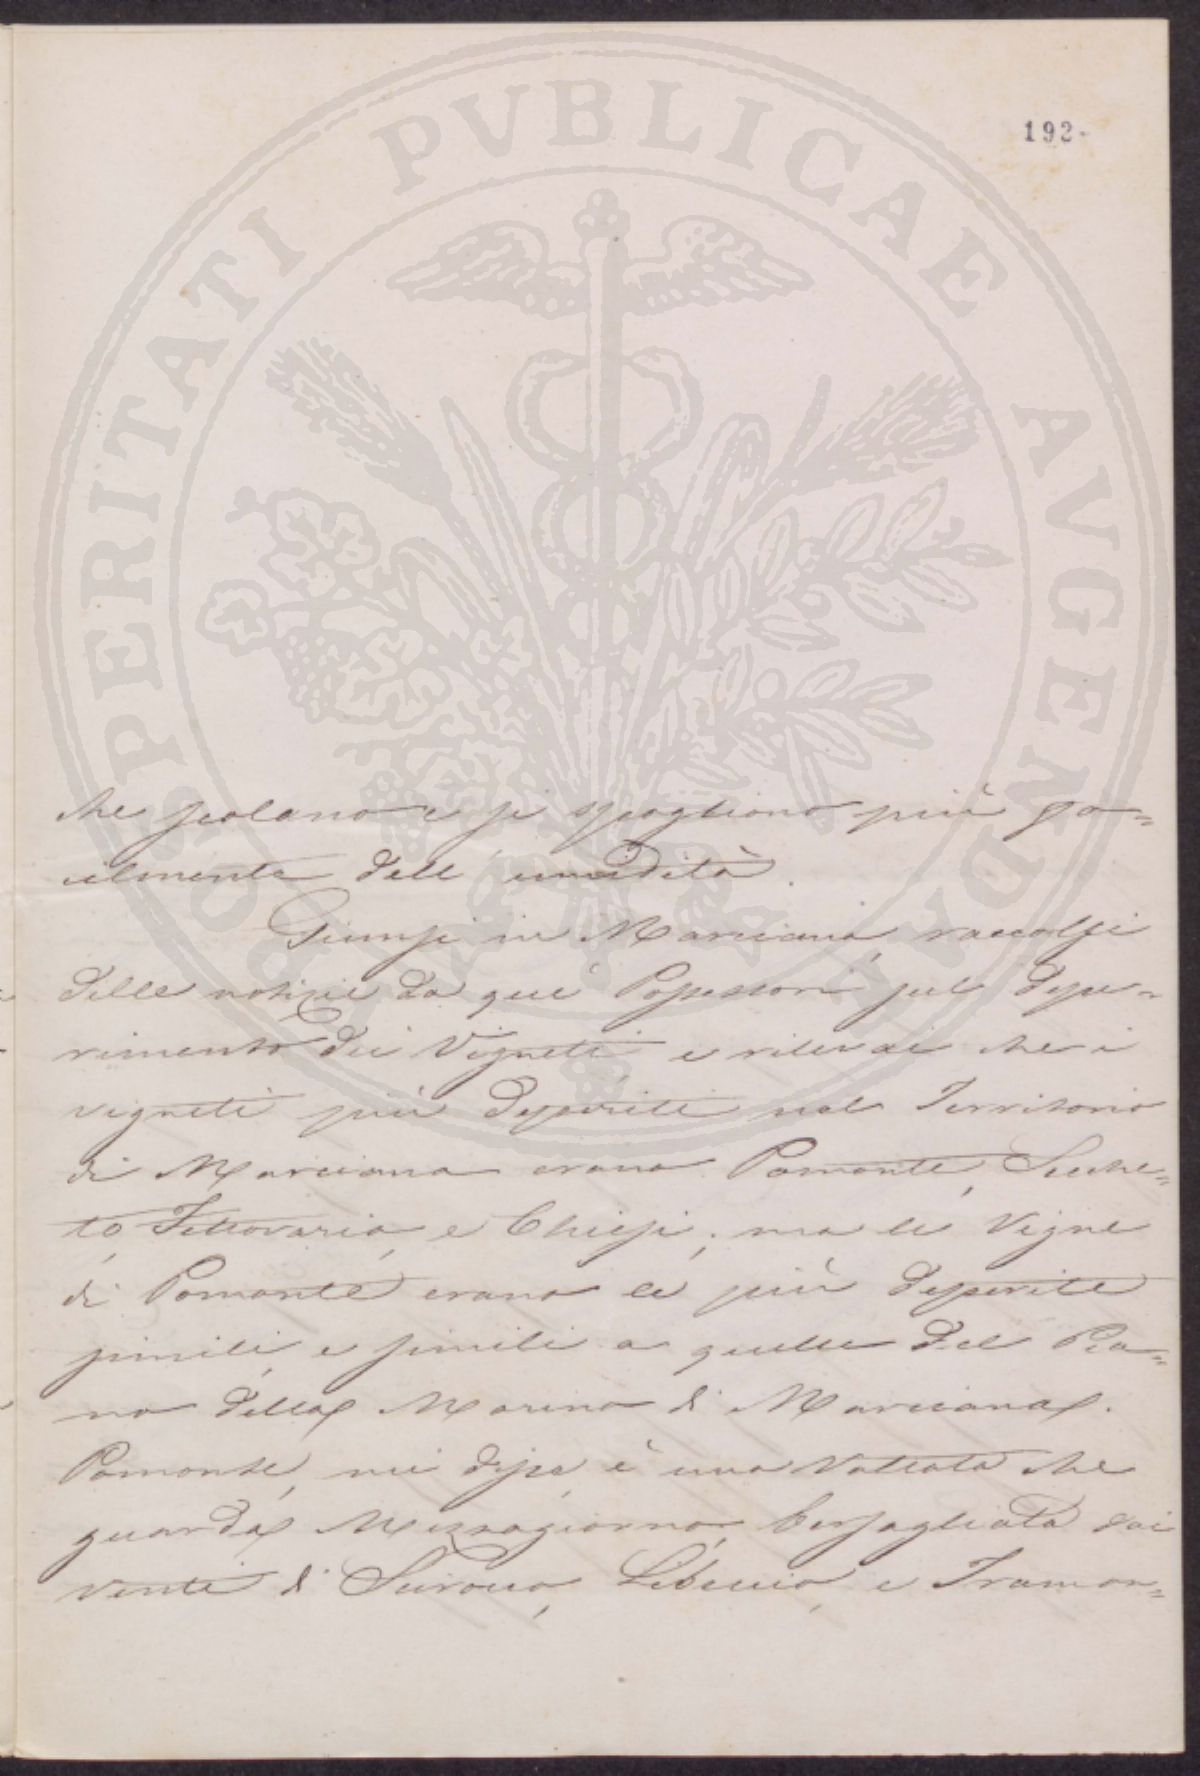 192.
PROSPERITATI PVBLICAE AVGENDAE
che scolano e si spogliono più fa=
cilmente dell'umidità.
Giunsi in Marciana, raccolsi
delle notizie da que' Possessori sul depe=
rimento dei Vigneti e rilevai che i
vigneti più deperiti nel Territorio
di Marciana erano Pomonte, Secche=
to, Fetovaria, e Chiessi; ma le Vigne
di Pomonte erano le più deperite
simili, e simili a quelle del Pia=
no della Marina di Marciana.
Pomonte, mi disse, è una Vallata che
guarda Mezzogiorno, bersagliata dai
venti di Scirocco, Libeccio, e Tramon=